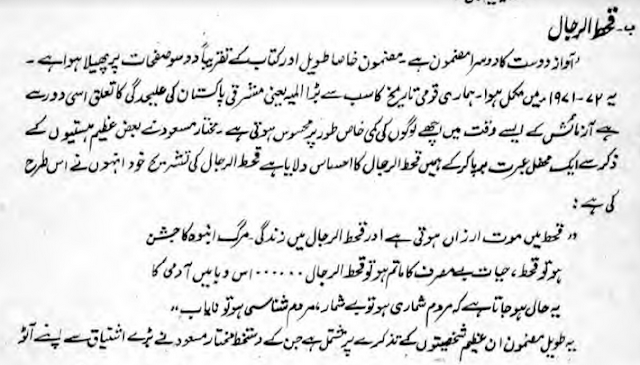 ب۔ قحط الرجال
"آواز دوست کا دوسرا مضمون ہے۔ مضمون خاصا طویل اور کتاب کے تقریباً دو سو صفحات پر پھیلا ہوا ہے۔
یہ ۷۲-۱۹۷۱ میں مکمل ہوا۔ ہماری قومی تاریخ کا سب سے بڑا المیہ یعنی مشرقی پاکستان کی علیحدگی کا تعلق اسی دور سے
ہے آزمائش کے ایسے وقت میں اچھے لوگوں کی کمی خاص طور پر محسوس ہوتی ہے۔ مختار مسعود نے بعض عظیم ہستیوں کے
ذکر سے ایک محفل عبرت برپا کر کے ہمیں قحط الرجال کا احساس دلایا ہے قحط الرجال کی تشریح خود انہوں نے اس طرح
کی ہے:
"قحط میں موت ارزاں ہوتی ہے اور قحط الرجال میں زندگی۔ مرگ انبوہ کا جشن
ہو تو قحط، حیات بے مصرف کا ماتم ہو تو قحط الرجال ...... اس وبا میں آدمی کا
یہ حال ہو جاتا ہے کہ مردم شماری ہو تو بے شمار، مردم شناسی ہو تو نایاب"
یہ طویل مضمون ان عظیم شخصیتوں کے تذکرے پر مشتمل ہے جن کے دستخط مختار مسعود نے بڑے اشتیاق سے اپنے آٹو